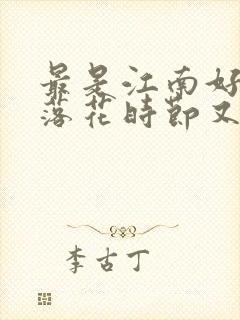 最是江南好
落花时节又
李古丁